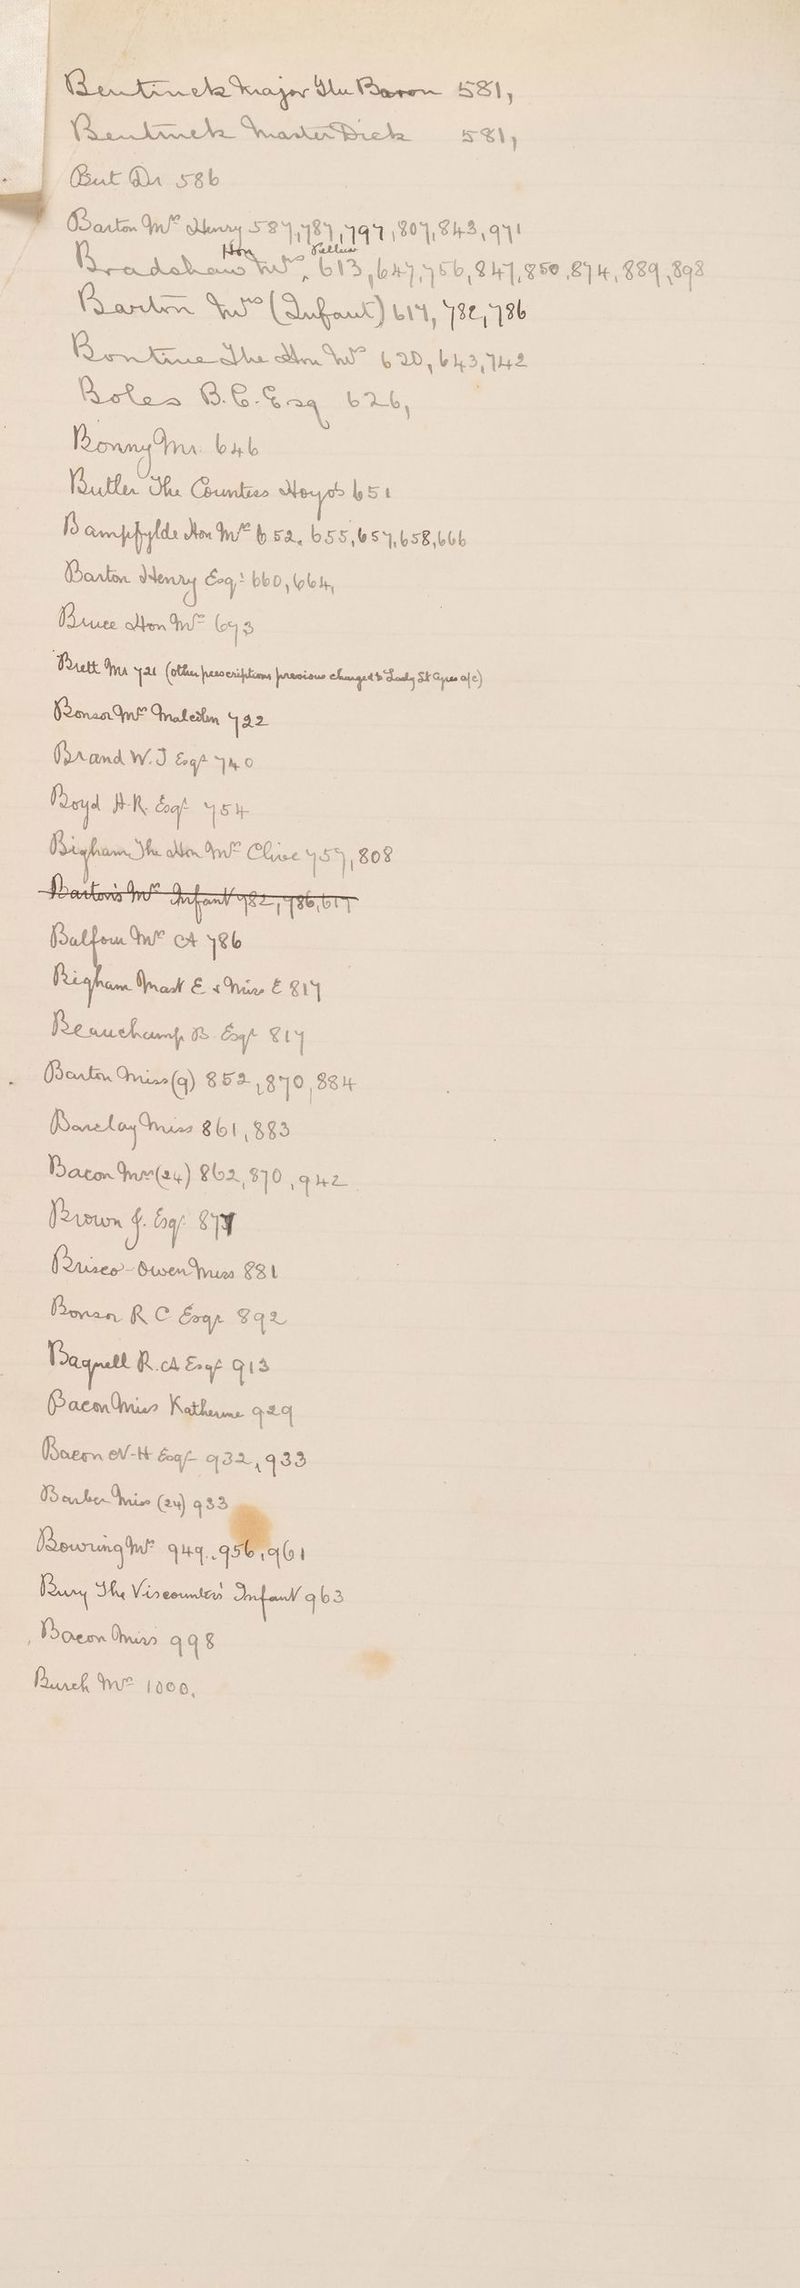 Bentinck Major The Baron 581,
Bentinck Master Dick 581,
But Dr 586
Barton Mrs Henry 587, 787, 797, 807, 843, 971
Hon
Bradshaw Mrs, 613, 647, 756, 847, 850, 874, 889, 898
Barton Mrs (Infant) 617, 782, 786
Bontine The Hon Mrs 620, 643, 742
Boles B.C. Esq 626,
Bonny Mr. 646
Butler The Countess 651
Bampfylde Hon Mrs 652, 655, 657, 658, 666
Barton Henry Esqr 660, 664,
Bruce Hon Mrs 673
Brett Mr 721 (other prescriptions previous charged to Lady St a/c)
Bonsor Mrs Malcolm 722
Brand W.J Esqr 740
Boyd H.R. Esqr 754
Bigham The Hon Mrs Clive 757, 808
Barton's Mrs Infant 782, 786, 617
Balfour Mrs CA 786
Bigham Mast E & Miss E 817
Beauchamp B. Esqr 817
Barton Miss (9) 852, 870, 884
Barclay Miss 861, 883
Bacon Mrs (24) 862, 870, 942
Brown J. Esqr 877
Brisco-Owen Miss 881
Bonsor R C Esqr 892
Bagnell R.A Esqr 913
Bacon Miss Katherine 929
Bacon N-H Esqr 932, 933
Barber Miss (24) 933
Bowring Mrs 949, 956, 961
Bury The Viscountess' Infant 963
Bacon Miss 998
Burch Mrs 1000,